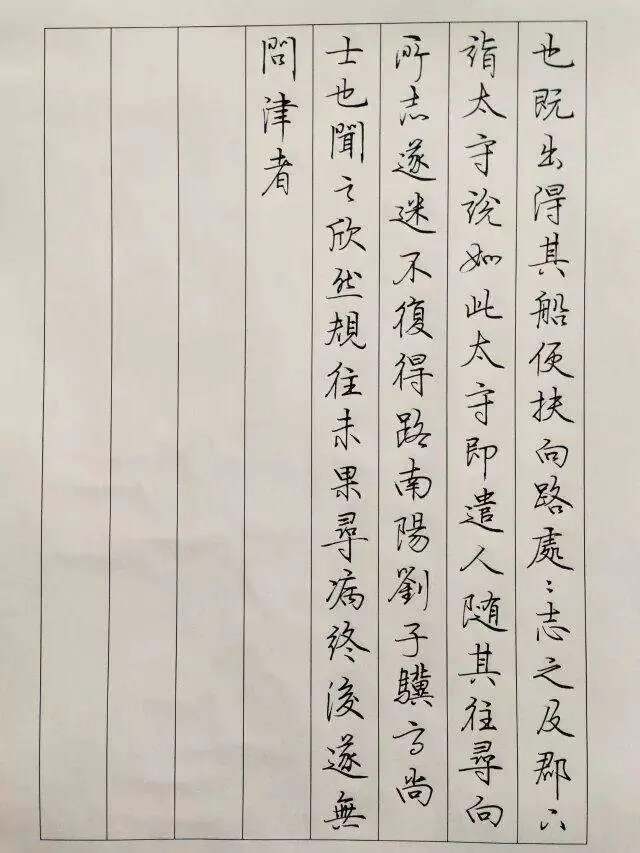 也既出得其船便扶向路處:志之及郡下
詣太守說如此太守即遣人随其往尋向
所志遂迷不復得路南陽劉子驥高尚
士也聞之欣然規往未果尋病終後遂無
問津者